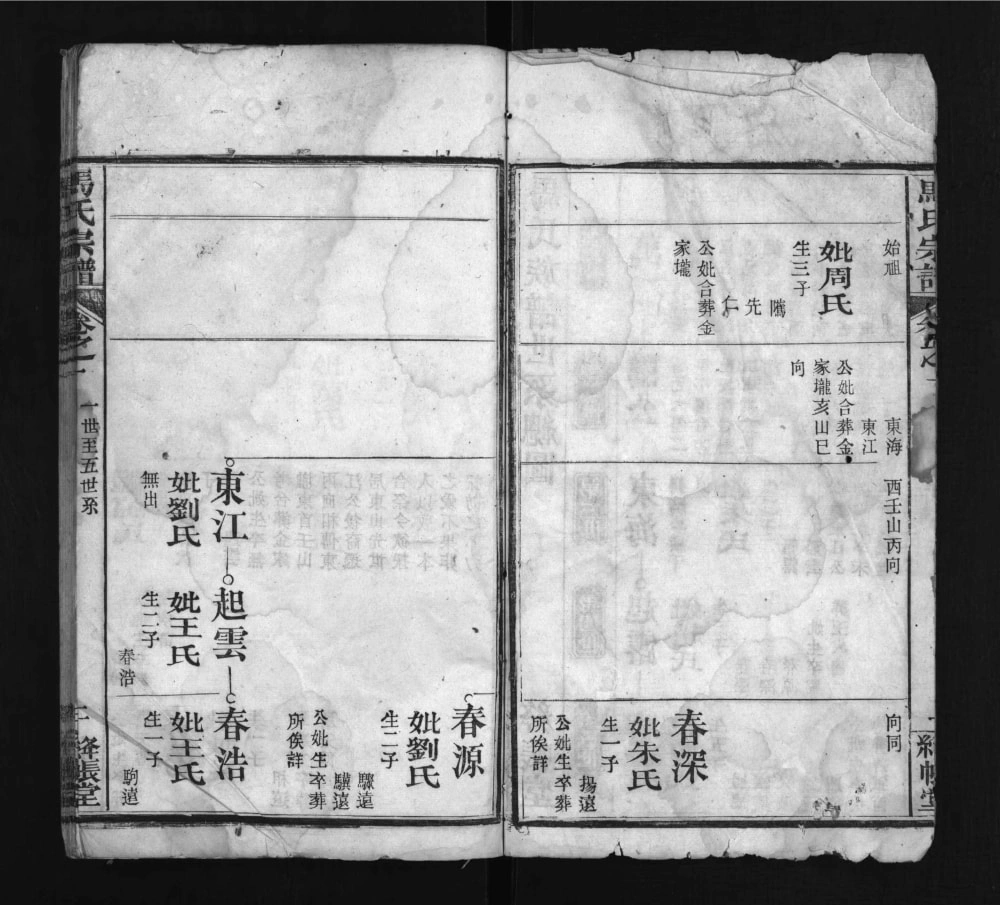 馬氏宗譜
卷之一
絳帳堂
始祖
妣周氏
生三子
騰
先
仁
公妣合葬金
家壠
東海
東江
公妣合葬金
家壠亥山巳
向
酉壬山丙向
向同
春深
妣朱氏
生一子
揚遠
公妣生卒葬
所俟詳
春源
妣劉氏
生二子
驟遠
驥遠
公妣生卒葬
所俟詳
東江
妣劉氏
無出
起雲
妣王氏
生二子
春浩
春浩
妣王氏
生一子
駒遠
馬氏宗譜
卷之一
一世至五世系
二
絳帳堂